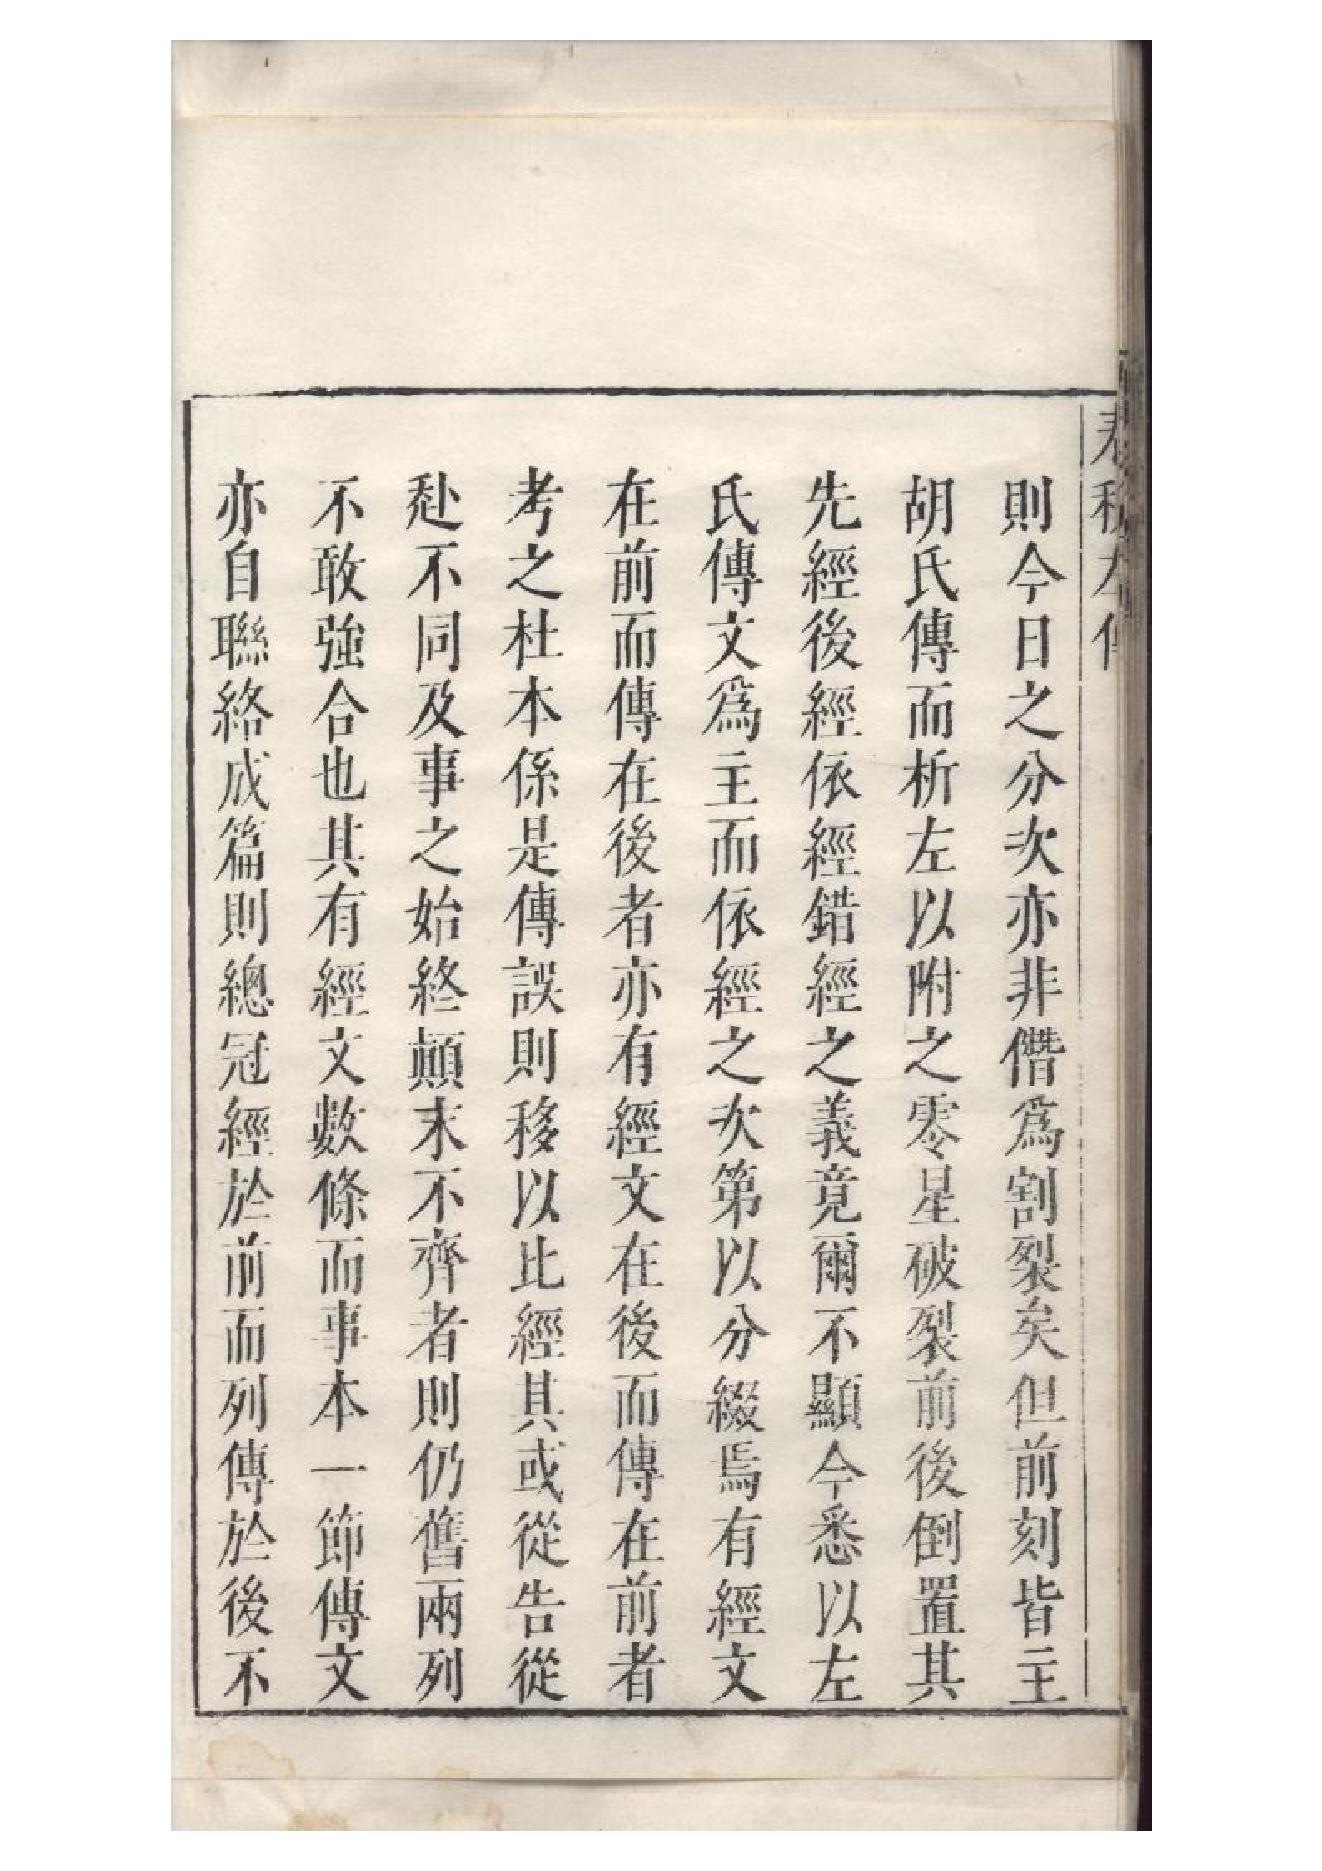 春秋左傳
則今日之分次亦非僭爲割裂矣但前刻皆主
胡氏傳而析左以附之零星破裂前後倒置其
先經後經依經錯經之義竟爾不顯今悉以左
氏傳文爲主而依經之次第以分綴焉有經文
在前而傳在後者亦有經文在後而傳在前者
考之杜本係是傳誤則移以比經其或從告從
赴不同及事之始終顛末不齊者則仍舊兩列
不敢強合也其有經文數條而事本一節傳文
亦自聯絡成篇則總冠經於前而列傳於後不